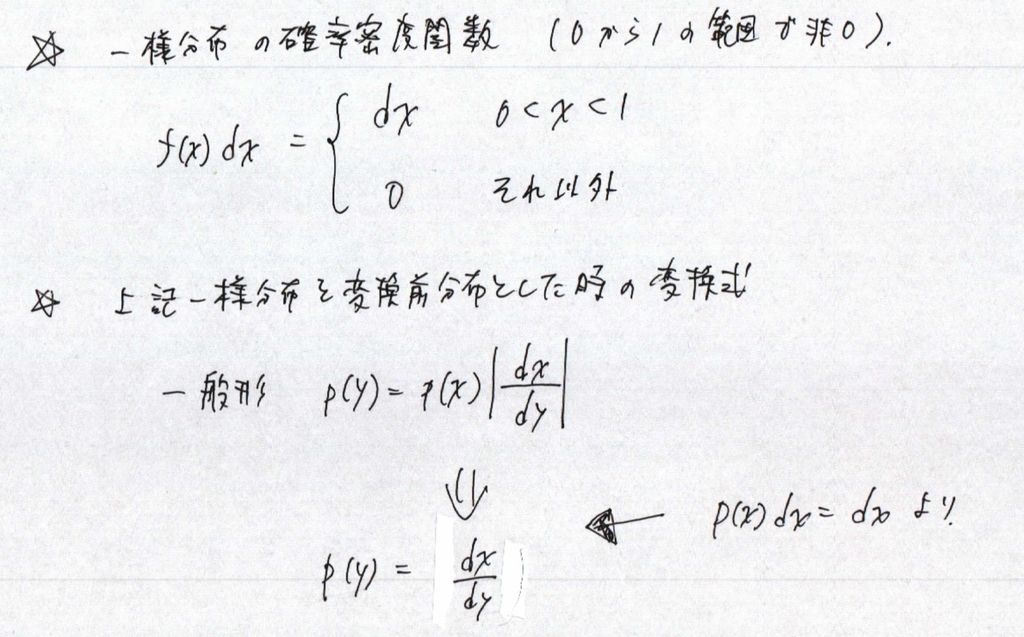 ☆ 一様分布の確率密度関数 (0から1の範囲で非0).
f(x) dx = { dx 0 < x < 1
0 それ以外
☆ 上記一様分布を変換前分布とした時の変換式
一般形 p(y) = p(x) |dx/dy|
⇓
p(x) dx = dx より
p(y) = dx/dy